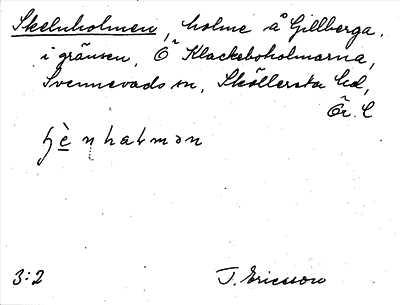 Skelnholmen, holme å Gillberga.
i gränsen, Ö Klackeboholmarna,
Svennevads sn, Sköllersta hd,
Ör. l
3:2 J. Ericsson